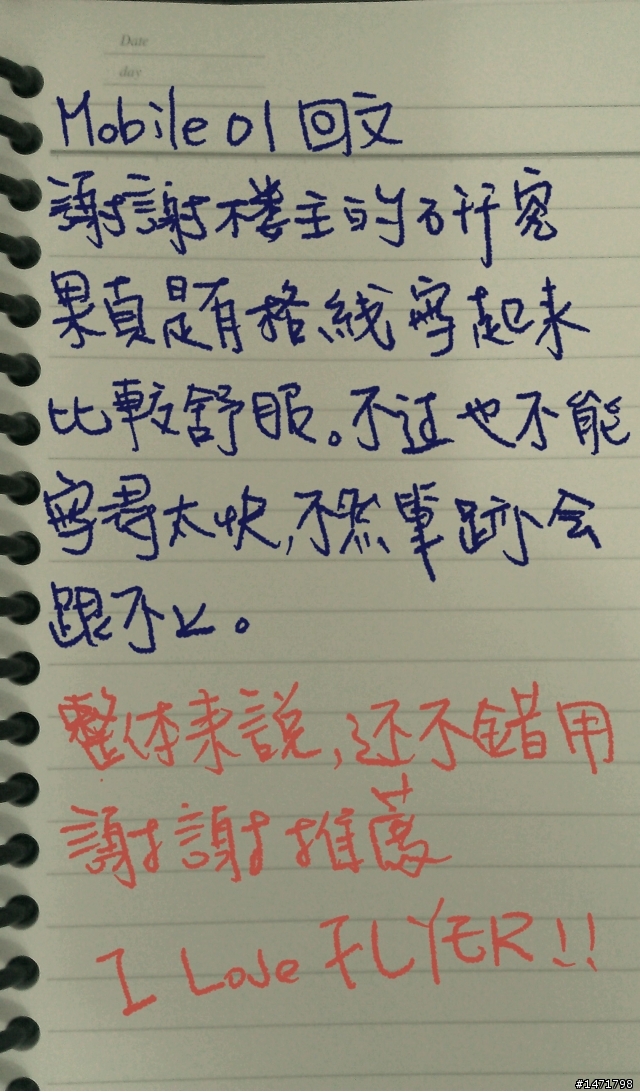 Date
day
Mobile 01 回文
謝謝楼主的研究
果真是有格線寫起来
比較舒服。不过也不能
寫得太快,不然筆跡会
跟不上。
整体来説,还不錯用
謝謝推薦
I Love FLYER!!
#1471798